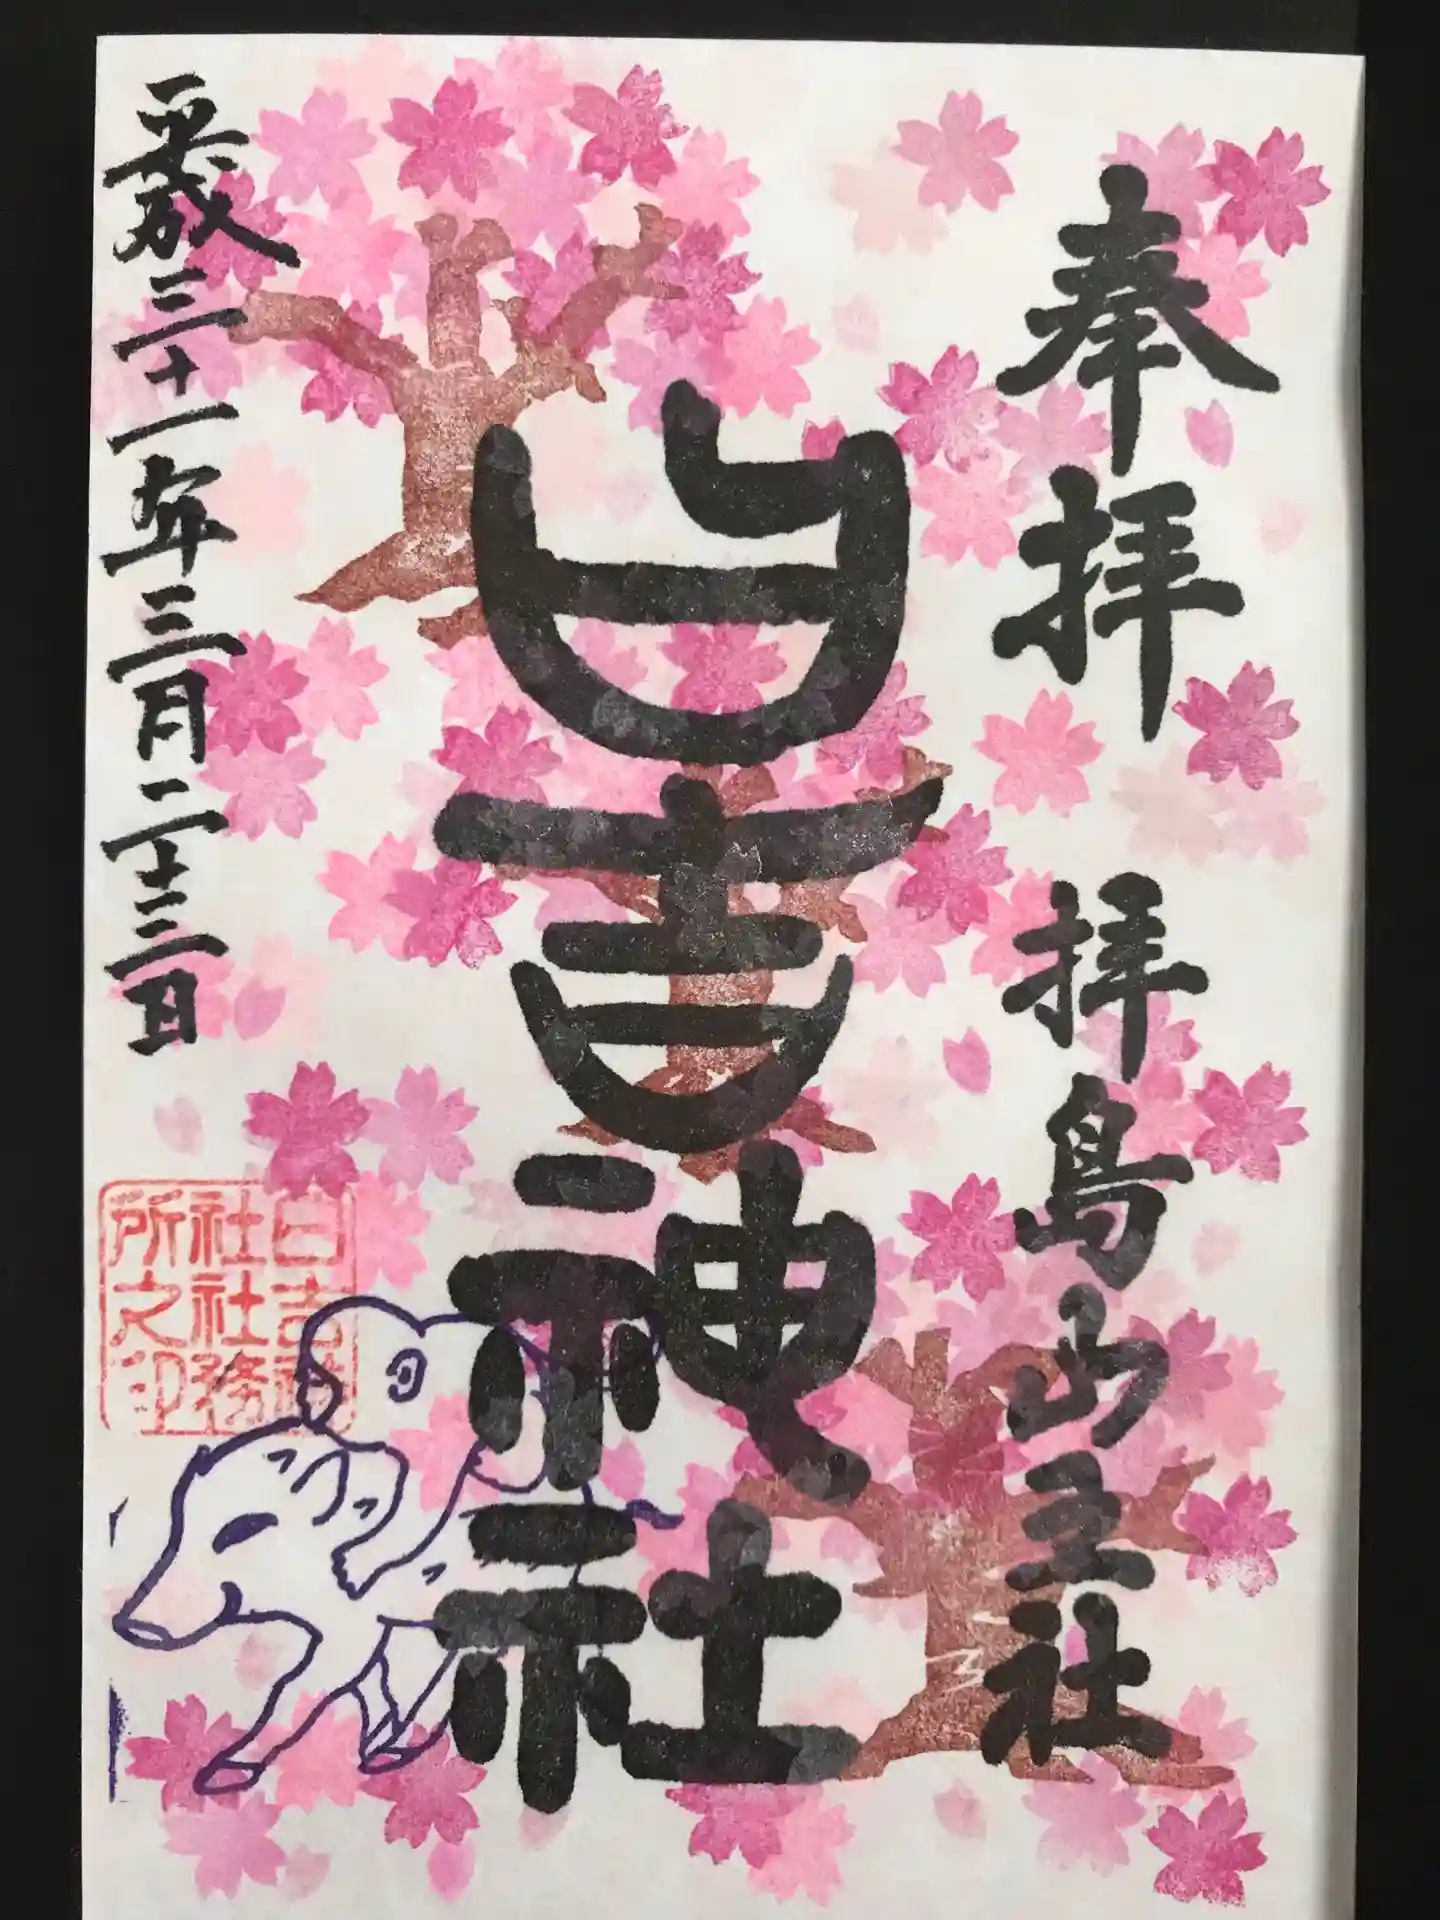 奉拝　拝島山王社
日吉神社
平成三十一年三月二十三日
日吉神
社社務
所之印